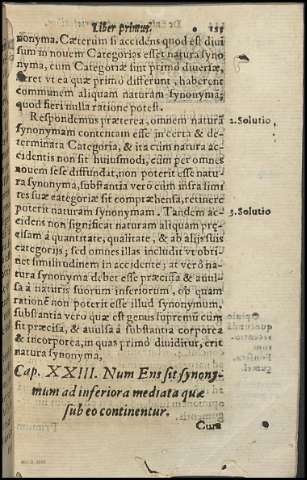 Liber primus. 135
nonyma. Cæterum si accidens quod est diui
sum in nouem Categorias esset natura syno
nyma, cum Categoriæ sint primò diuersæ,
fieret vt ea quæ primò differunt, haberent
communem aliquam naturam synonymã;
quod fieri nulla ratione potest.
Respondemus præterea, omnem naturã
synonymam contentam esse in certa & de-
terminata Categoria, & ita cùm natura ac-
cidentis non sit huiusmodi, cùm per omnes
nouem sese diffundat, non poterit esse natu-
ra synonyma, substantia verò cùm infra limi
tes suæ categoriæ sit compræhensa, retinere
poterit naturam synonymam. Tandem ac-
cidens non significat naturam aliquam præ-
cisam à quantitate, qualitate, & ab alijs suis
categorijs; sed omnes illas includit vt obti-
net similitudinem in accidente; at verò na-
tura synonyma debet esse præcisa & auul-
sa à naturis suorum inferiorum, ob quam
rationẽ non poterit esse illud synonymum,
substantia verò quæ est genus supremũ cùm
sit præcisa, & auulsa à substantia corporea
& incorporea, in quas primò diuiditur, erit
natura synonyma,
2. Solutio,
3. Solutio
Cap. XXIII. Num Ens sit synony-
mum ad inferiora mediata quæ
sub eo continentur.
Cum